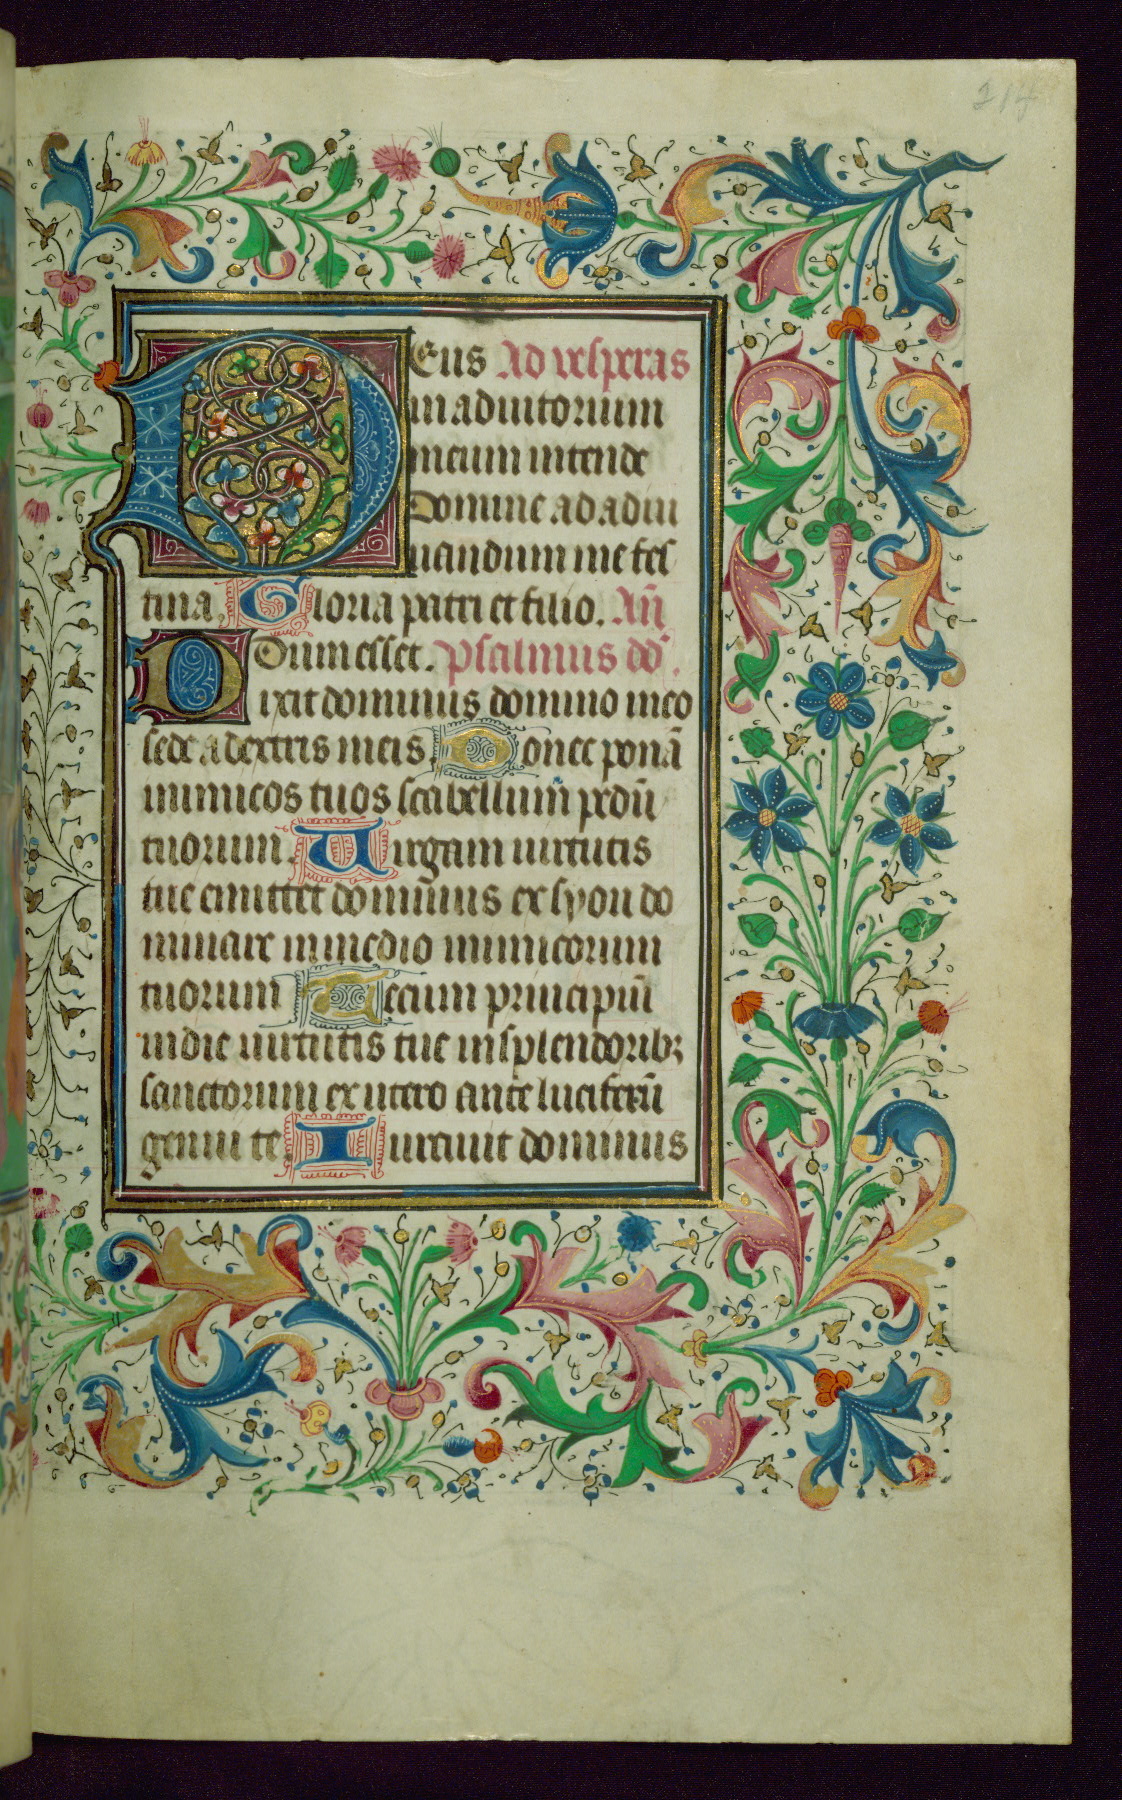 214
Deus Ad vesperas
in adiutorium
meum intende
Domine ad adiu
uandum me fes
tina, Gloria patri et filio. Añ
Dum esset. Psalmus dd̄.
Dixit dominus domino meo
sede a dextris meis. Donec ponā
inimicos tuos scabellum̄ pedū
tuorum. Uirgam uirtutis
tue emittet domin̄us ex syon do
minare in medio inimicorum
tuorum Tecum principiū
in die uirtutis tue in splendoribꝫ
sanctorum ex utero ante luciferū
genui te. Iurauit dominus